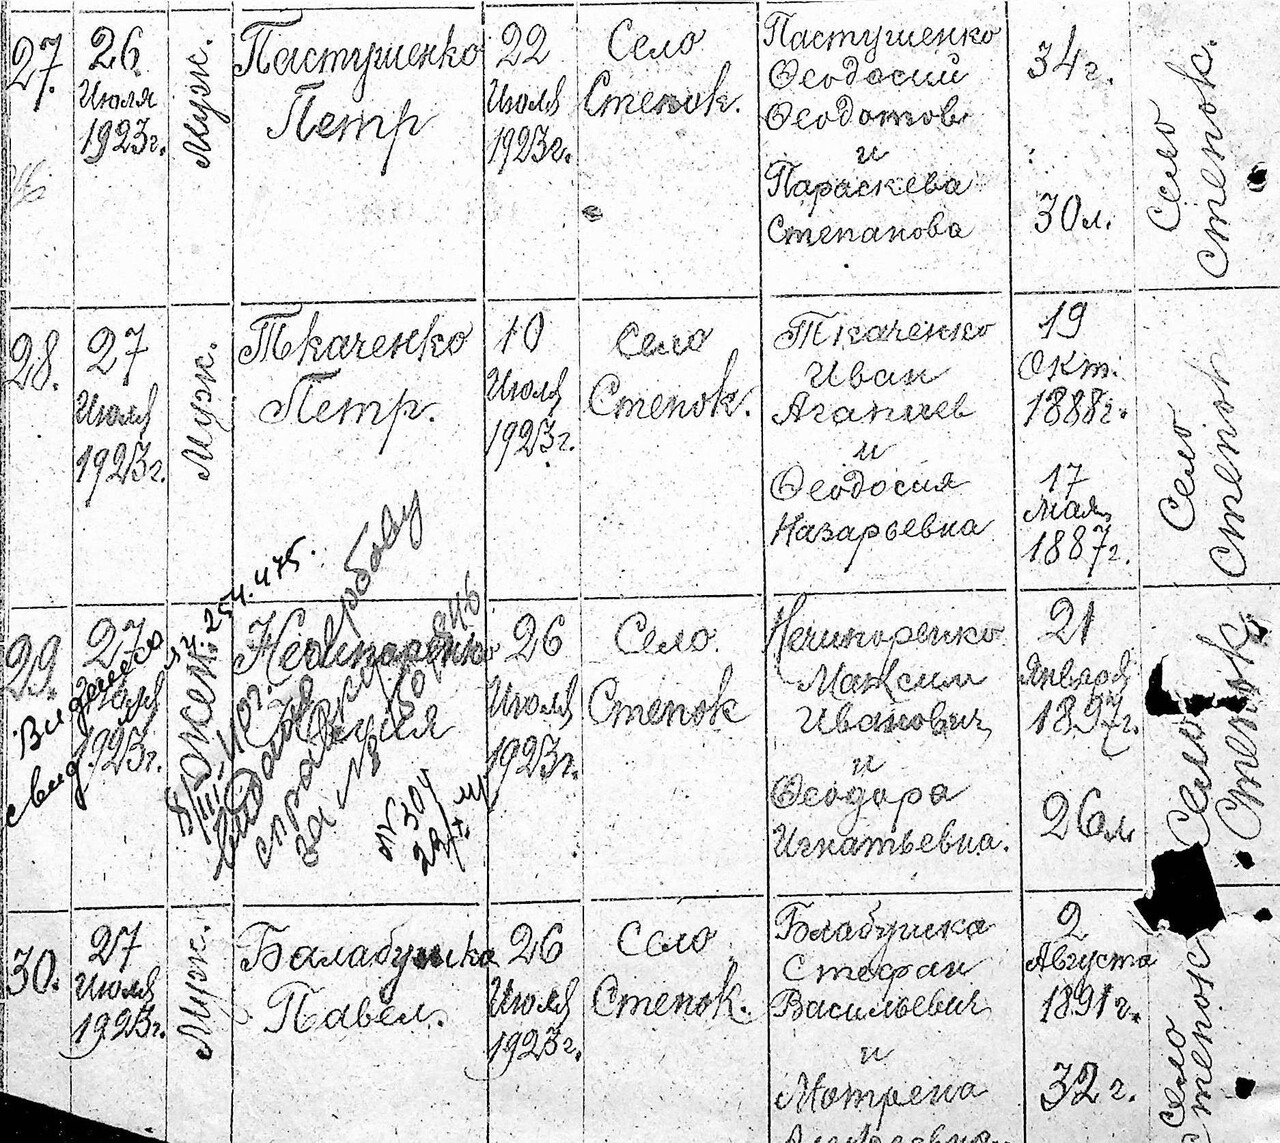 27.
26
Июля
1923г.
Муж.
Пастушенко
Петр
22
Июля
1923г.
Село
Степок.
Пастушенко
Феодосий
Феодотов
и
Параскева
Степанова
34г.
30л.
Село
Степок.
28.
27
Июля
1923г.
Муж.
Ткаченко
Петр.
10
Июля
1923г.
Село
Степок.
Ткаченко
Иван
Агапиев
и
Феодосия
Назарьевна
19
Окт.
1888г.
17
Мая
1887г.
Село
Степок
29.
27
Июля
1923г.
Жен.
Нечипоренко
26
Июля
1923г.
Село.
Степок
Нечипоренко
Максим
Иванович
и
Феодора
Игнатьевна.
21
Января
1897г.
26л.
Село
Степок
254.475.
за №8
№304
30.
27
Июля
1923г.
Муж.
Балабушка
Павел.
26
Июля
1923г.
Село
Степок.
Блабушка
Стефан
Васильевич
и
Мотрена
2
Августа
1891г.
32г.
Село
Степок